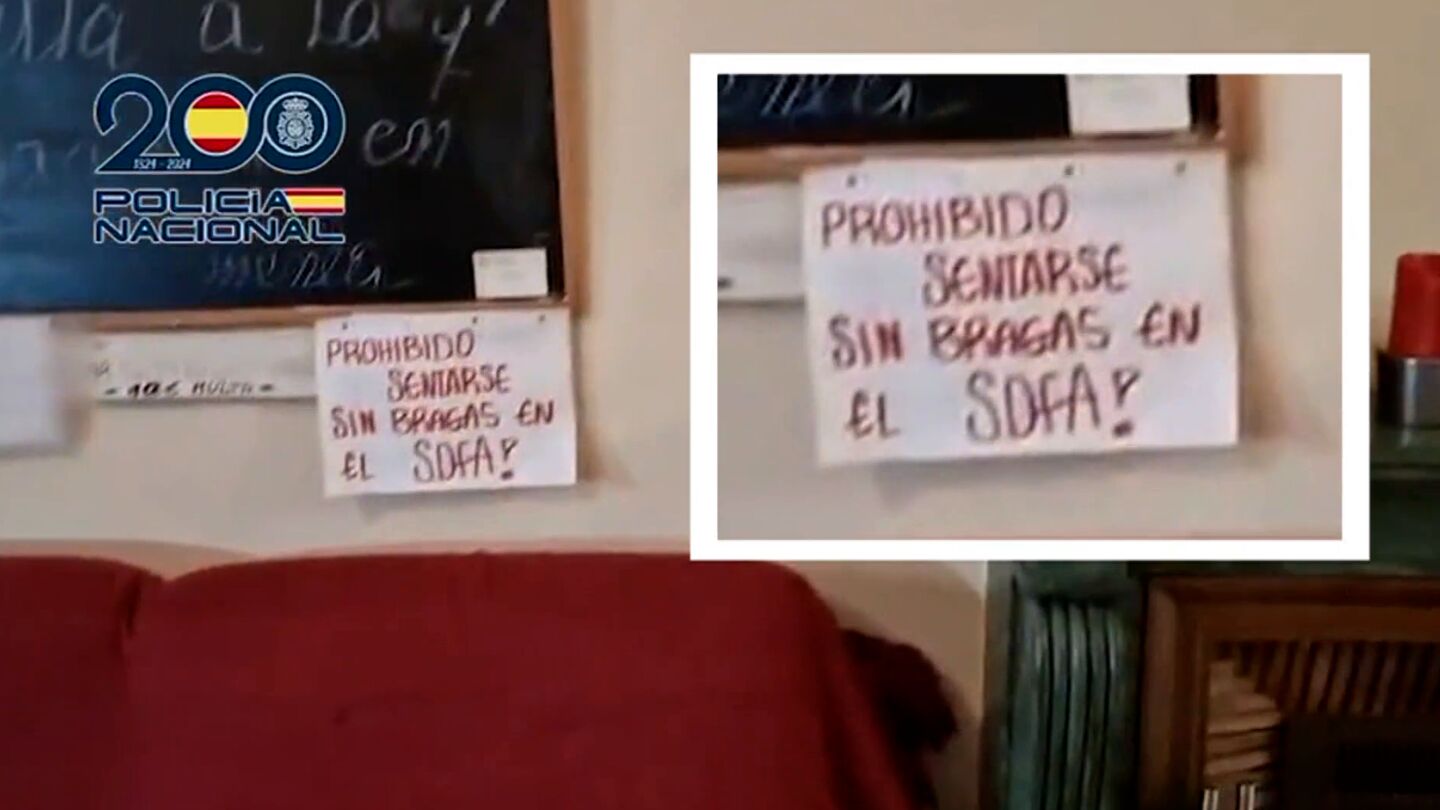 a la y
200
1824 - 2024
en
POLICIA
NACIONAL
- 10€ MULTA -
PROHIBIDO
SENTARSE
SIN BRAGAS EN
EL SOFA!
PROHIBIDO
SENTARSE
SIN BRAGAS EN
EL SOFA!